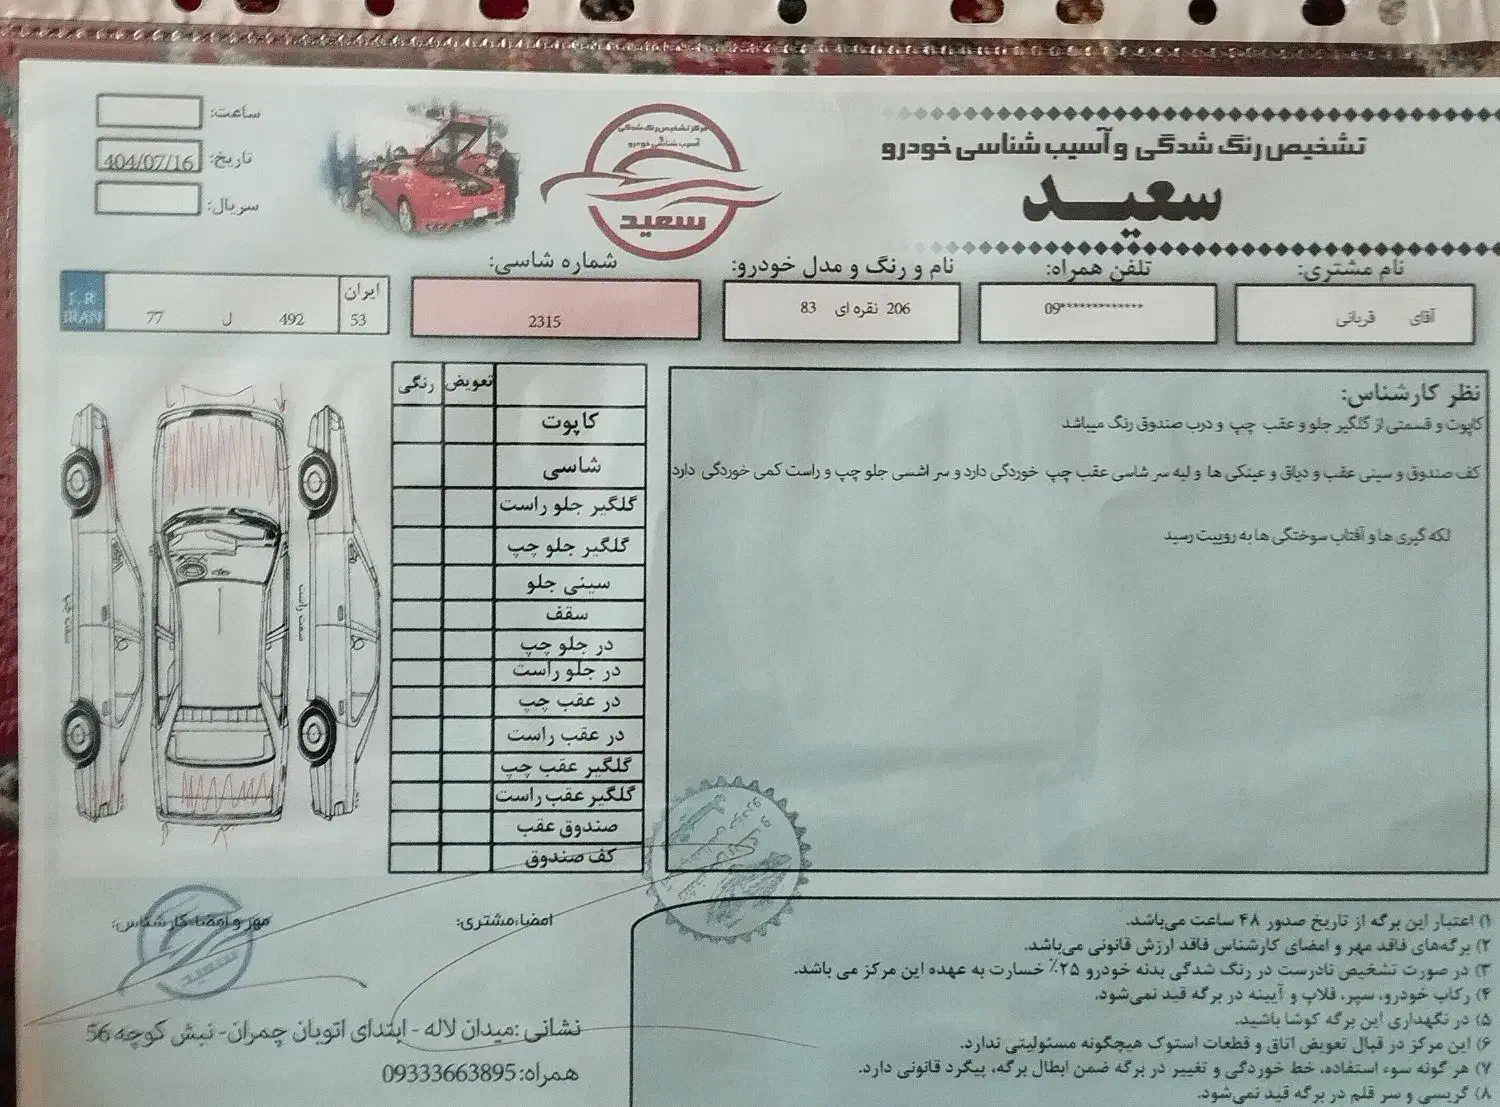 تشخیص رنگ شدگی و آسیب شناسی خودرو
سعید
مرکز تشخیص رنگ شدگی
و
آسیب شناسی خودرو
سعید
ساعت:
تاریخ: 404/07/16
سریال:
نام مشتری:
آقای قربانی
تلفن همراه:
09*************
نام و رنگ و مدل خودرو:
206 نقره ای 83
شماره شاسی:
2315
I.R IRAN
77 ل 492
ایران
53
نظر کارشناس:
کاپوت و قسمتی از گلگیر جلو و عقب چپ و درب صندوق رنگ میباشد
کف صندوق و سینی عقب و دیاق و عینکی ها و لبه سر شاسی عقب چپ خوردگی دارد و سر اشسی جلو چپ و راست کمی خوردگی دارد
لکه گیری ها و آفتاب سوختگی ها به روییت رسید
تعویض رنگی
کاپوت
شاسی
گلگیر جلو راست
گلگیر جلو چپ
سینی جلو
سقف
در جلو چپ
در جلو راست
در عقب چپ
در عقب راست
گلگیر عقب چپ
گلگیر عقب راست
صندوق عقب
کف صندوق
سمت راست
سمت چپ
امضاء مشتری:
مهر و امضاء کارشناس:
سعید
نشانی :میدان لاله - ابتدای اتوبان چمران- نبش کوچه 56
همراه: 09333663895
۱) اعتبار این برگه از تاریخ صدور ۴۸ ساعت می‌باشد.
۲) برگه‌های فاقد مهر و امضای کارشناس فاقد ارزش قانونی می‌باشد.
۳) در صورت تشخیص نادرست در رنگ شدگی بدنه خودرو ۲۵٪ خسارت به عهده این مرکز می باشد.
۴) رکاب خودرو، سپر، قلاپ و آیینه در برگه قید نمی‌شود.
۵) در نگهداری این برگه کوشا باشید.
۶) این مرکز در قبال تعویض اتاق و قطعات استوک هیچگونه مسئولیتی ندارد.
۷) هر گونه سوء استفاده، خط خوردگی و تغییر در برگه ضمن ابطال برگه، پیگرد قانونی دارد.
۸) گریسی و سر قلم در برگه قید نمی‌شود.